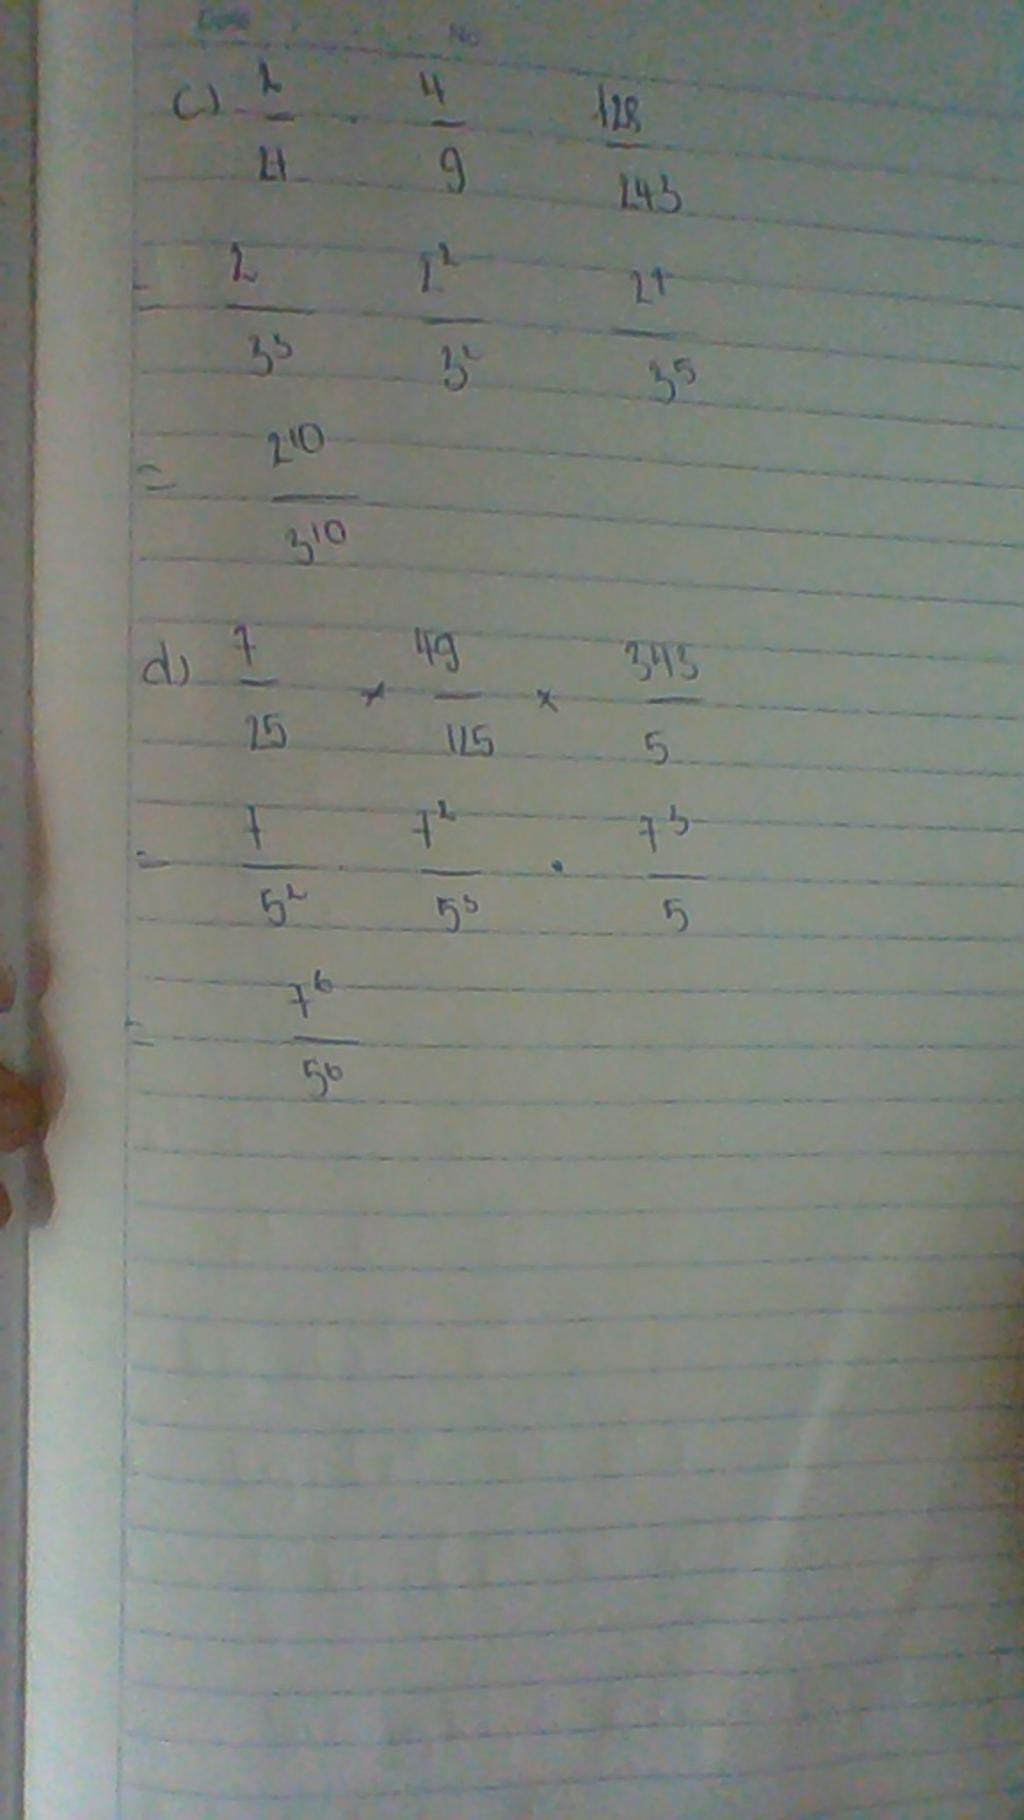 Date No
c) 2/27 · 4/9 128/243
= 2/3³ 2²/3² · 2⁷/3⁵
= 2¹⁰/3¹⁰
d) 7/25 × 49/125 × 343/5
= 7/5² · 7²/5³ · 7³/5
= 7⁶/5⁶